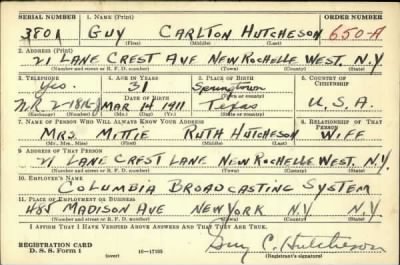 SERIAL NUMBER 1. NAME (Print) ORDER NUMBER
3801 GUY CARLTON HUTCHESON 650-A
(First) (Middle) (Last)
2. ADDRESS (Print)
21 LANE CREST AVE NEW ROCHELLE WEST. N.Y.
(Number and street or R. F. D. number) (Town) (County) (State)
3. TELEPHONE 4. AGE IN YEARS 5. PLACE OF BIRTH 6. COUNTRY OF CITIZENSHIP
Yes. 31 Springtown
DATE OF BIRTH (Town or county)
N.R. 2-1815J MAR 14 1911 TEXAS U.S.A.
(Exchange) (Number) (Mo.) (Day) (Yr.) (State or country)
7. NAME OF PERSON WHO WILL ALWAYS KNOW YOUR ADDRESS 8. RELATIONSHIP OF THAT PERSON
MRS. MITTIE RUTH HUTCHESON WIFE
(Mr., Mrs., Miss) (First) (Middle) (Last)
9. ADDRESS OF THAT PERSON
21 LANE CREST LANE NEW ROCHELLE WEST. N.Y.
(Number and street or R. F. D. number) (Town) (County) (State)
10. EMPLOYER'S NAME
COLUMBIA BROADCASTING SYSTEM
11. PLACE OF EMPLOYMENT OR BUSINESS
485 MADISON AVE NEW YORK N.Y. N.Y.
(Number and street or R. F. D. number) (Town) (County) (State)
I AFFIRM THAT I HAVE VERIFIED ABOVE ANSWERS AND THAT THEY ARE TRUE.
REGISTRATION CARD
D. S. S. Form 1 16-17105 Guy C. Hutcheson
(over) (Registrant's signature)